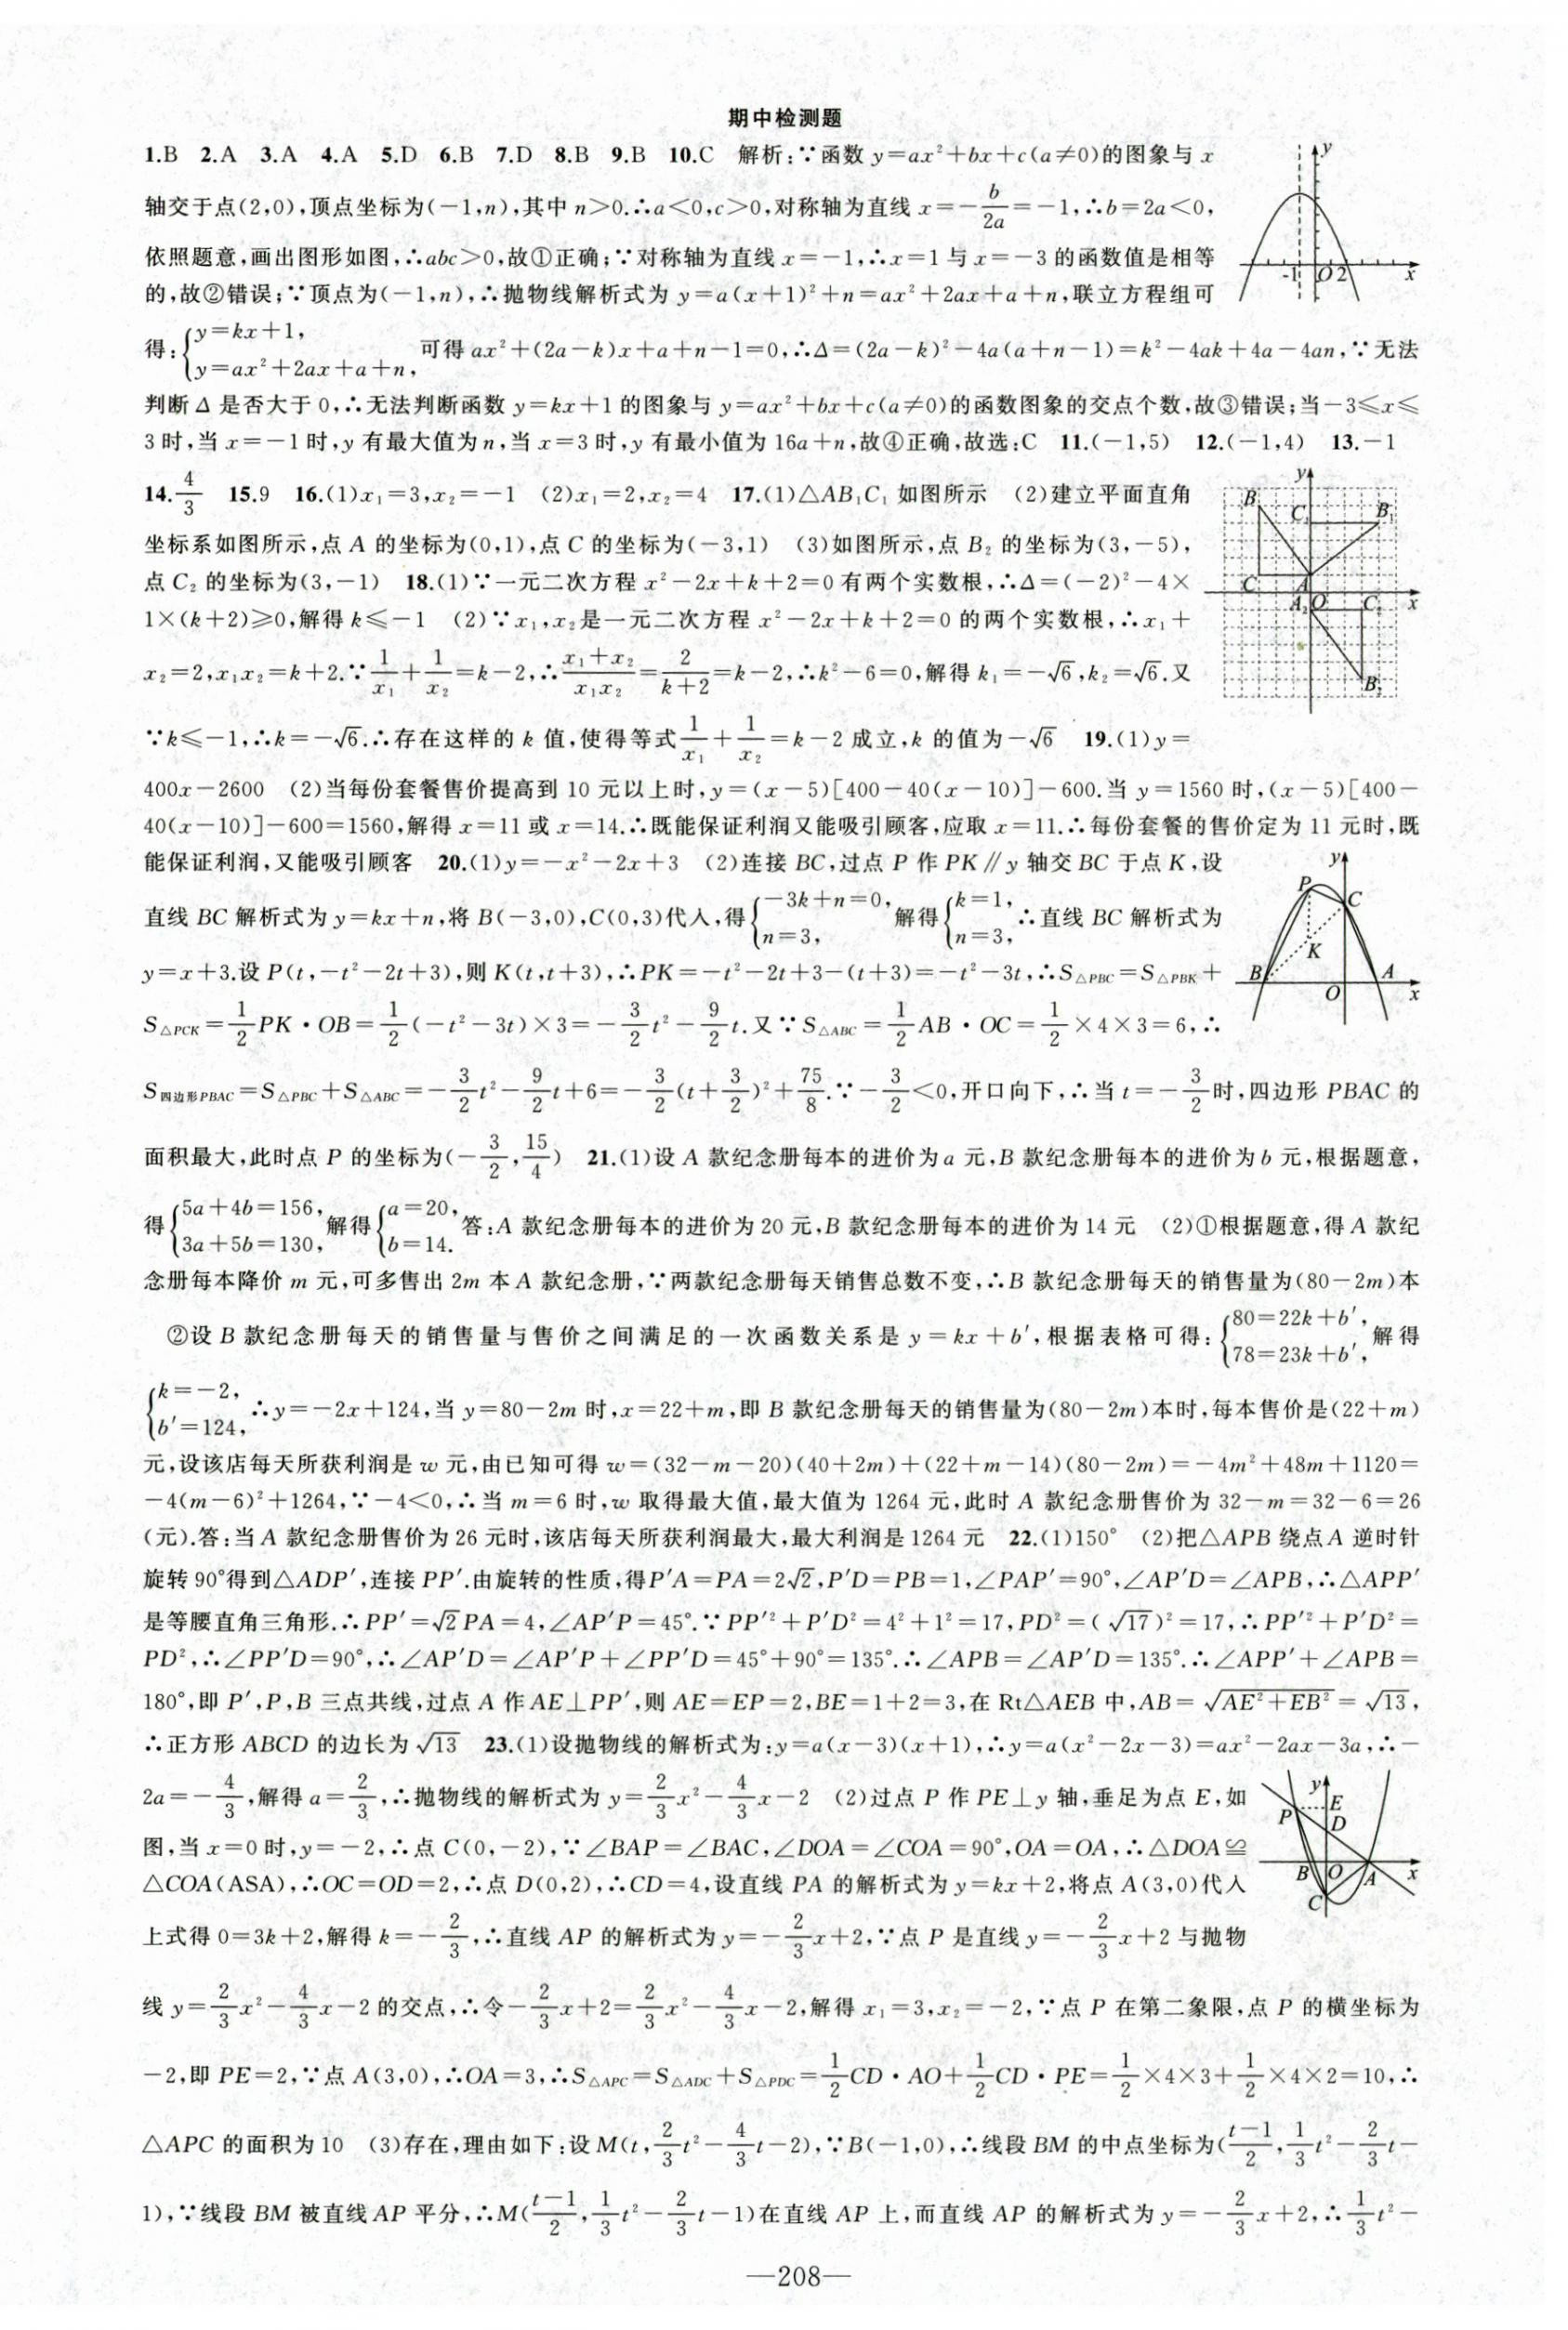 期中检测题
1.B 2.A 3.A 4.A 5.D 6.B 7.D 8.B 9.B 10.C 解析:∵函数 y=ax²+bx+c(a≠0)的图象与 x
轴交于点(2,0),顶点坐标为(-1,n),其中 n>0.∴a<0,c>0,对称轴为直线 x=-b/2a=-1,∴b=2a<0,
依照题意,画出图形如图,∴abc>0,故①正确;∵对称轴为直线 x=-1,∴x=1 与 x=-3 的函数值是相等
的,故②错误;∵顶点为(-1,n),∴抛物线解析式为 y=a(x+1)²+n=ax²+2ax+a+n,联立方程组可
得:{y=kx+1, y=ax²+2ax+a+n, 可得 ax²+(2a-k)x+a+n-1=0,∴Δ=(2a-k)²-4a(a+n-1)=k²-4ak+4a-4an,∵无法
判断 Δ 是否大于 0,∴无法判断函数 y=kx+1 的图象与 y=ax²+bx+c(a≠0)的函数图象的交点个数,故③错误;当-3≤x≤
3 时,当 x=-1 时,y 有最大值为 n,当 x=3 时,y 有最小值为 16a+n,故④正确,故选:C 11.(-1,5) 12.(-1,4) 13.-1
14.4/3 15.9 16.(1)x₁=3,x₂=-1 (2)x₁=2,x₂=4 17.(1)△AB₁C₁ 如图所示 (2)建立平面直角
坐标系如图所示,点 A 的坐标为(0,1),点 C 的坐标为(-3,1) (3)如图所示,点 B₂ 的坐标为(3,-5),
点 C₂ 的坐标为(3,-1) 18.(1)∵一元二次方程 x²-2x+k+2=0 有两个实数根,∴Δ=(-2)²-4×
1×(k+2)≥0,解得 k≤-1 (2)∵x₁,x₂是一元二次方程 x²-2x+k+2=0 的两个实数根,∴x₁+
x₂=2,x₁x₂=k+2.∵1/x₁+1/x₂=k-2,∴(x₁+x₂)/x₁x₂=2/(k+2)=k-2,∴k²-6=0,解得 k₁=-√6,k₂=√6.又
∵k≤-1,∴k=-√6.∴存在这样的 k 值,使得等式1/x₁+1/x₂=k-2 成立,k 的值为-√6 19.(1)y=
400x-2600 (2)当每份套餐售价提高到 10 元以上时,y=(x-5)[400-40(x-10)]-600.当 y=1560 时,(x-5)[400-
40(x-10)]-600=1560,解得 x=11 或 x=14.∴既能保证利润又能吸引顾客,应取 x=11.∴每份套餐的售价定为 11 元时,既
能保证利润,又能吸引顾客 20.(1)y=-x²-2x+3 (2)连接 BC,过点 P 作 PK∥y 轴交 BC 于点 K,设
直线 BC 解析式为 y=kx+n,将 B(-3,0),C(0,3)代入,得{-3k+n=0, n=3, 解得{k=1, n=3, ∴直线 BC 解析式为
y=x+3.设 P(t,-t²-2t+3),则 K(t,t+3),∴PK=-t²-2t+3-(t+3)=-t²-3t,∴S△PBC=S△PBK+
S△PCK=1/2PK·OB=1/2(-t²-3t)×3=-3/2t²-9/2t.又∵S△ABC=1/2AB·OC=1/2×4×3=6,∴
S四边形PBAC=S△PBC+S△ABC=-3/2t²-9/2t+6=-3/2(t+3/2)²+75/8.∵-3/2<0,开口向下,∴当 t=-3/2时,四边形 PBAC 的
面积最大,此时点 P 的坐标为(-3/2,15/4) 21.(1)设 A 款纪念册每本的进价为 a 元,B 款纪念册每本的进价为 b 元,根据题意,
得{5a+4b=156, 3a+5b=130, 解得{a=20, b=14. 答:A 款纪念册每本的进价为 20 元,B 款纪念册每本的进价为 14 元 (2)①根据题意,得 A 款纪
念册每本降价 m 元,可多售出 2m 本 A 款纪念册,∵两款纪念册每天销售总数不变,∴B 款纪念册每天的销售量为(80-2m)本
②设 B 款纪念册每天的销售量与售价之间满足的一次函数关系是 y=kx+b′,根据表格可得:{80=22k+b′, 78=23k+b′, 解得
{k=-2, b′=124, ∴y=-2x+124,当 y=80-2m 时,x=22+m,即 B 款纪念册每天的销售量为(80-2m)本时,每本售价是(22+m)
元,设该店每天所获利润是 w 元,由已知可得 w=(32-m-20)(40+2m)+(22+m-14)(80-2m)=-4m²+48m+1120=
-4(m-6)²+1264,∵-4<0,∴当 m=6 时,w 取得最大值,最大值为 1264 元,此时 A 款纪念册售价为 32-m=32-6=26
(元).答:当 A 款纪念册售价为 26 元时,该店每天所获利润最大,最大利润是 1264 元 22.(1)150° (2)把△APB 绕点 A 逆时针
旋转 90°得到△ADP′,连接 PP′.由旋转的性质,得P′A=PA=2√2,P′D=PB=1,∠PAP′=90°,∠AP′D=∠APB,∴△APP′
是等腰直角三角形.∴PP′=√2PA=4,∠AP′P=45°.∵PP′²+P′D²=4²+1²=17,PD²=(√17)²=17,∴PP′²+P′D²=
PD²,∴∠PP′D=90°,∴∠AP′D=∠AP′P+∠PP′D=45°+90°=135°.∴∠APB=∠AP′D=135°.∴∠APP′+∠APB=
180°,即 P′,P,B 三点共线,过点 A 作 AE⊥PP′,则 AE=EP=2,BE=1+2=3,在 Rt△AEB 中,AB=√(AE²+EB²)=√13,
∴正方形 ABCD 的边长为√13 23.(1)设抛物线的解析式为:y=a(x-3)(x+1),∴y=a(x²-2x-3)=ax²-2ax-3a,∴-
2a=-4/3,解得 a=2/3,∴抛物线的解析式为 y=2/3x²-4/3x-2 (2)过点 P 作 PE⊥y 轴,垂足为点 E,如
图,当 x=0 时,y=-2,∴点 C(0,-2),∵∠BAP=∠BAC,∠DOA=∠COA=90°,OA=OA,∴△DOA≌
△COA(ASA),∴OC=OD=2,∴点 D(0,2),∴CD=4,设直线 PA 的解析式为 y=kx+2,将点 A(3,0)代入
上式得 0=3k+2,解得 k=-2/3,∴直线 AP 的解析式为 y=-2/3x+2,∵点 P 是直线 y=-2/3x+2 与抛物
线 y=2/3x²-4/3x-2 的交点,∴令-2/3x+2=2/3x²-4/3x-2,解得 x₁=3,x₂=-2,∵点 P 在第二象限,点 P 的横坐标为
-2,即 PE=2,∵点 A(3,0),∴OA=3,∴S△APC=S△ADC+S△PDC=1/2CD·AO+1/2CD·PE=1/2×4×3+1/2×4×2=10,∴
△APC 的面积为 10 (3)存在,理由如下:设 M(t,2/3t²-4/3t-2),∵B(-1,0),∴线段 BM 的中点坐标为((t-1)/2,1/3t²-2/3t-
1),∵线段 BM 被直线 AP 平分,∴M((t-1)/2,1/3t²-2/3t-1)在直线 AP 上,而直线 AP 的解析式为 y=-2/3x+2,∴1/3t²-
—208—